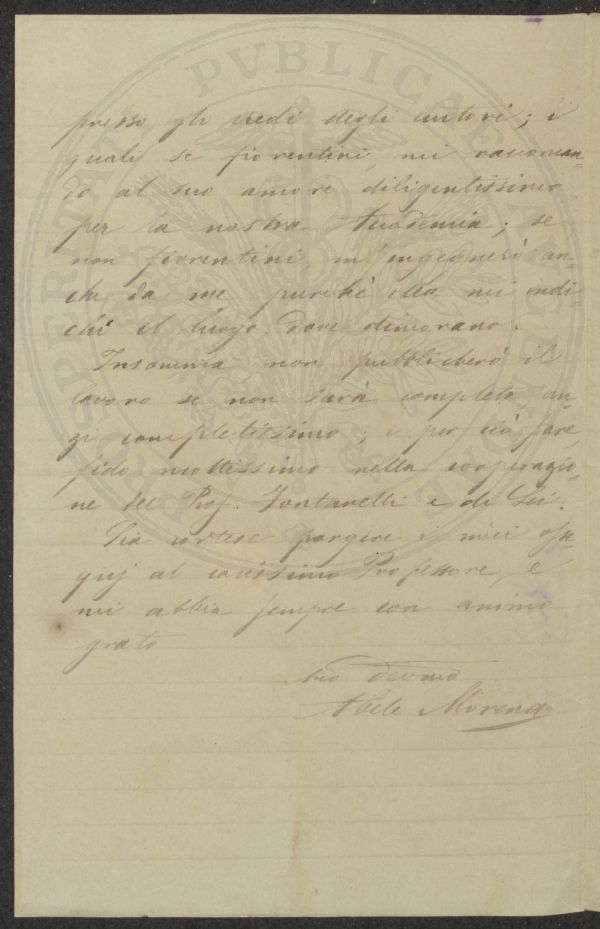 PROSPERITATI PVBLICAE AVGENDAE
presso gli eredi degli autori; i
quali se fiorentini, mi raccoman-
do al suo amore diligentissimo
per la nostra Accademia; se
non fiorentini, m'ingegnerò an-
che da me purchè ella mi indi-
chi il luogo dove dimorano.
Insomma non pubblicherò il
lavoro se non sarà completo, an-
zi completissimo; e per ciò fare
fido moltissimo nella cooperazio-
ne del Prof. Fontanelli e di Lei.
Sia cortese porgere i miei osse-
quj al carissimo Professore, e
mi abbia sempre con animo
grato
Suo Devmo
Abele Morena